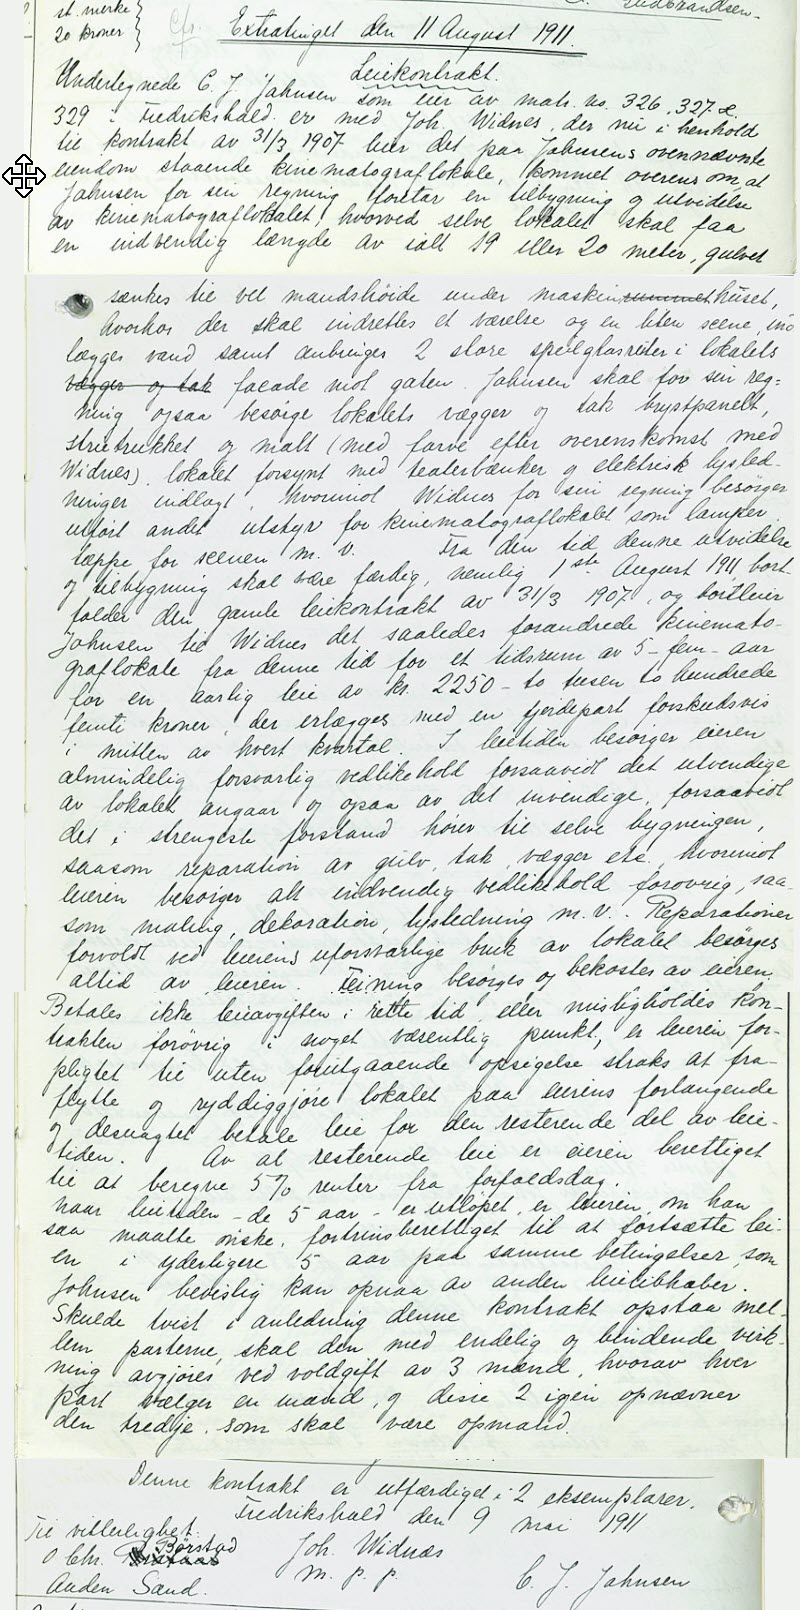 st. merke
20 kroner
Cfr. Extratinget den 11 August 1911.
Leiekontrakt.
Undertegnede C. J. Jahnsen som eier av matr. no. 326, 327 &
329 i Fredrikshald er med Joh. Widnes, der nu i henhold
til kontrakt av 31/3 1907 leier det paa Jahnsens ovennævnte
eiendom staaende kinematograflokale, kommet overens om, at
Jahnsen for sin regning foretar en tilbygning og utvidelse
av kinematograflokalet, hvorved selve lokalet skal faa
en indvendig længde av ialt 19 eller 20 meter, gulvet
sænkes til vel mandshøide under maskinrummet huset,
hvorhos der skal indrettes et værelse og en liten scene, ind
lægges vand samt anbringes 2 store speilglasruter i lokalets
vægger og tak facade mot gaten. Jahnsen skal for sin reg=
ning ogsaa besørge lokalets vægger og tak brystpanelt,
strietrukket og malt (med farve efter overenskomst med
Widnes), lokalet forsynt med teaterbænker og elektrisk lysled-
ninger indlagt, hvorimot Widnes for sin regning besørger
utført andet utstyr for kinematograflokalet som lamper,
tæppe for scenen m. v. Fra den tid denne utvidelse
og tilbygning skal være færdig, nemlig 1ste August 1911, bort-
falder den gamle leiekontrakt av 31/3 1907, og bortleier
Jahnsen til Widnes det saaledes forandrede kinemato-
graflokale fra denne tid for et tidsrum av 5 - fem - aar
for en aarlig leie av kr. 2250 - to tusen to hundrede
femti kroner, der erlægges med en fjerdepart forskudsvis
i midten av hvert kvartal. I leietiden besørger eieren
almindelig forsvarlig vedlikehold forsaavidt det utvendige
av lokalet angaar og ogsaa av det invendige, forsaavidt
det i strengeste forstand hører til selve bygningen,
saasom reparation av gulv, tak, vægger etc., hvorimot
leieren besørger alt indvendig vedlikehold forøvrig, saa-
som maling, dekoration, lysledning m. v. Reparationer
forvoldt ved leierens uforsvarlige bruk av lokalet besørges
altid av leieren. Feining besørges og bekostes av eieren.
Betales ikke leieavgiften i rette tid eller misligholdes kon-
trakten forøvrig i noget væsentlig punkt, er leieren for-
pligtet til uten forutgaaende opsigelse straks at fra-
flytte og ryddiggjøre lokalet paa eierens forlangende
og desuagtet betale leie for den resterende del av leie-
tiden. Av al resterende leie er eieren berettiget
til at beregne 5% renter fra forfaldsdag.
Naar leietiden - de 5 aar - er utløpet, er leieren, om han
saa maatte ønske, fortrinsberettiget til at fortsætte lei-
en i yderligere 5 aar paa samme betingelser, som
Jahnsen bevislig kan opnaa av anden leieliebhaber.
Skulde tvist i anledning denne kontrakt opstaa mel-
lem parterne, skal den med endelig og bindende virk-
ning avgjøres ved voldgift av 3 mænd, hvorav hver
part vælger en mand, og disse 2 igjen opnævner
den tredje, som skal være opmand.
Denne kontrakt er utfærdiget i 2 eksemplarer.
Fredrikshald den 9 mai 1911
Til vitterlighet:
O. Chr. Børstad Joh. Widnæs
Anden Sand. m. p. p. C. J. Jahnsen